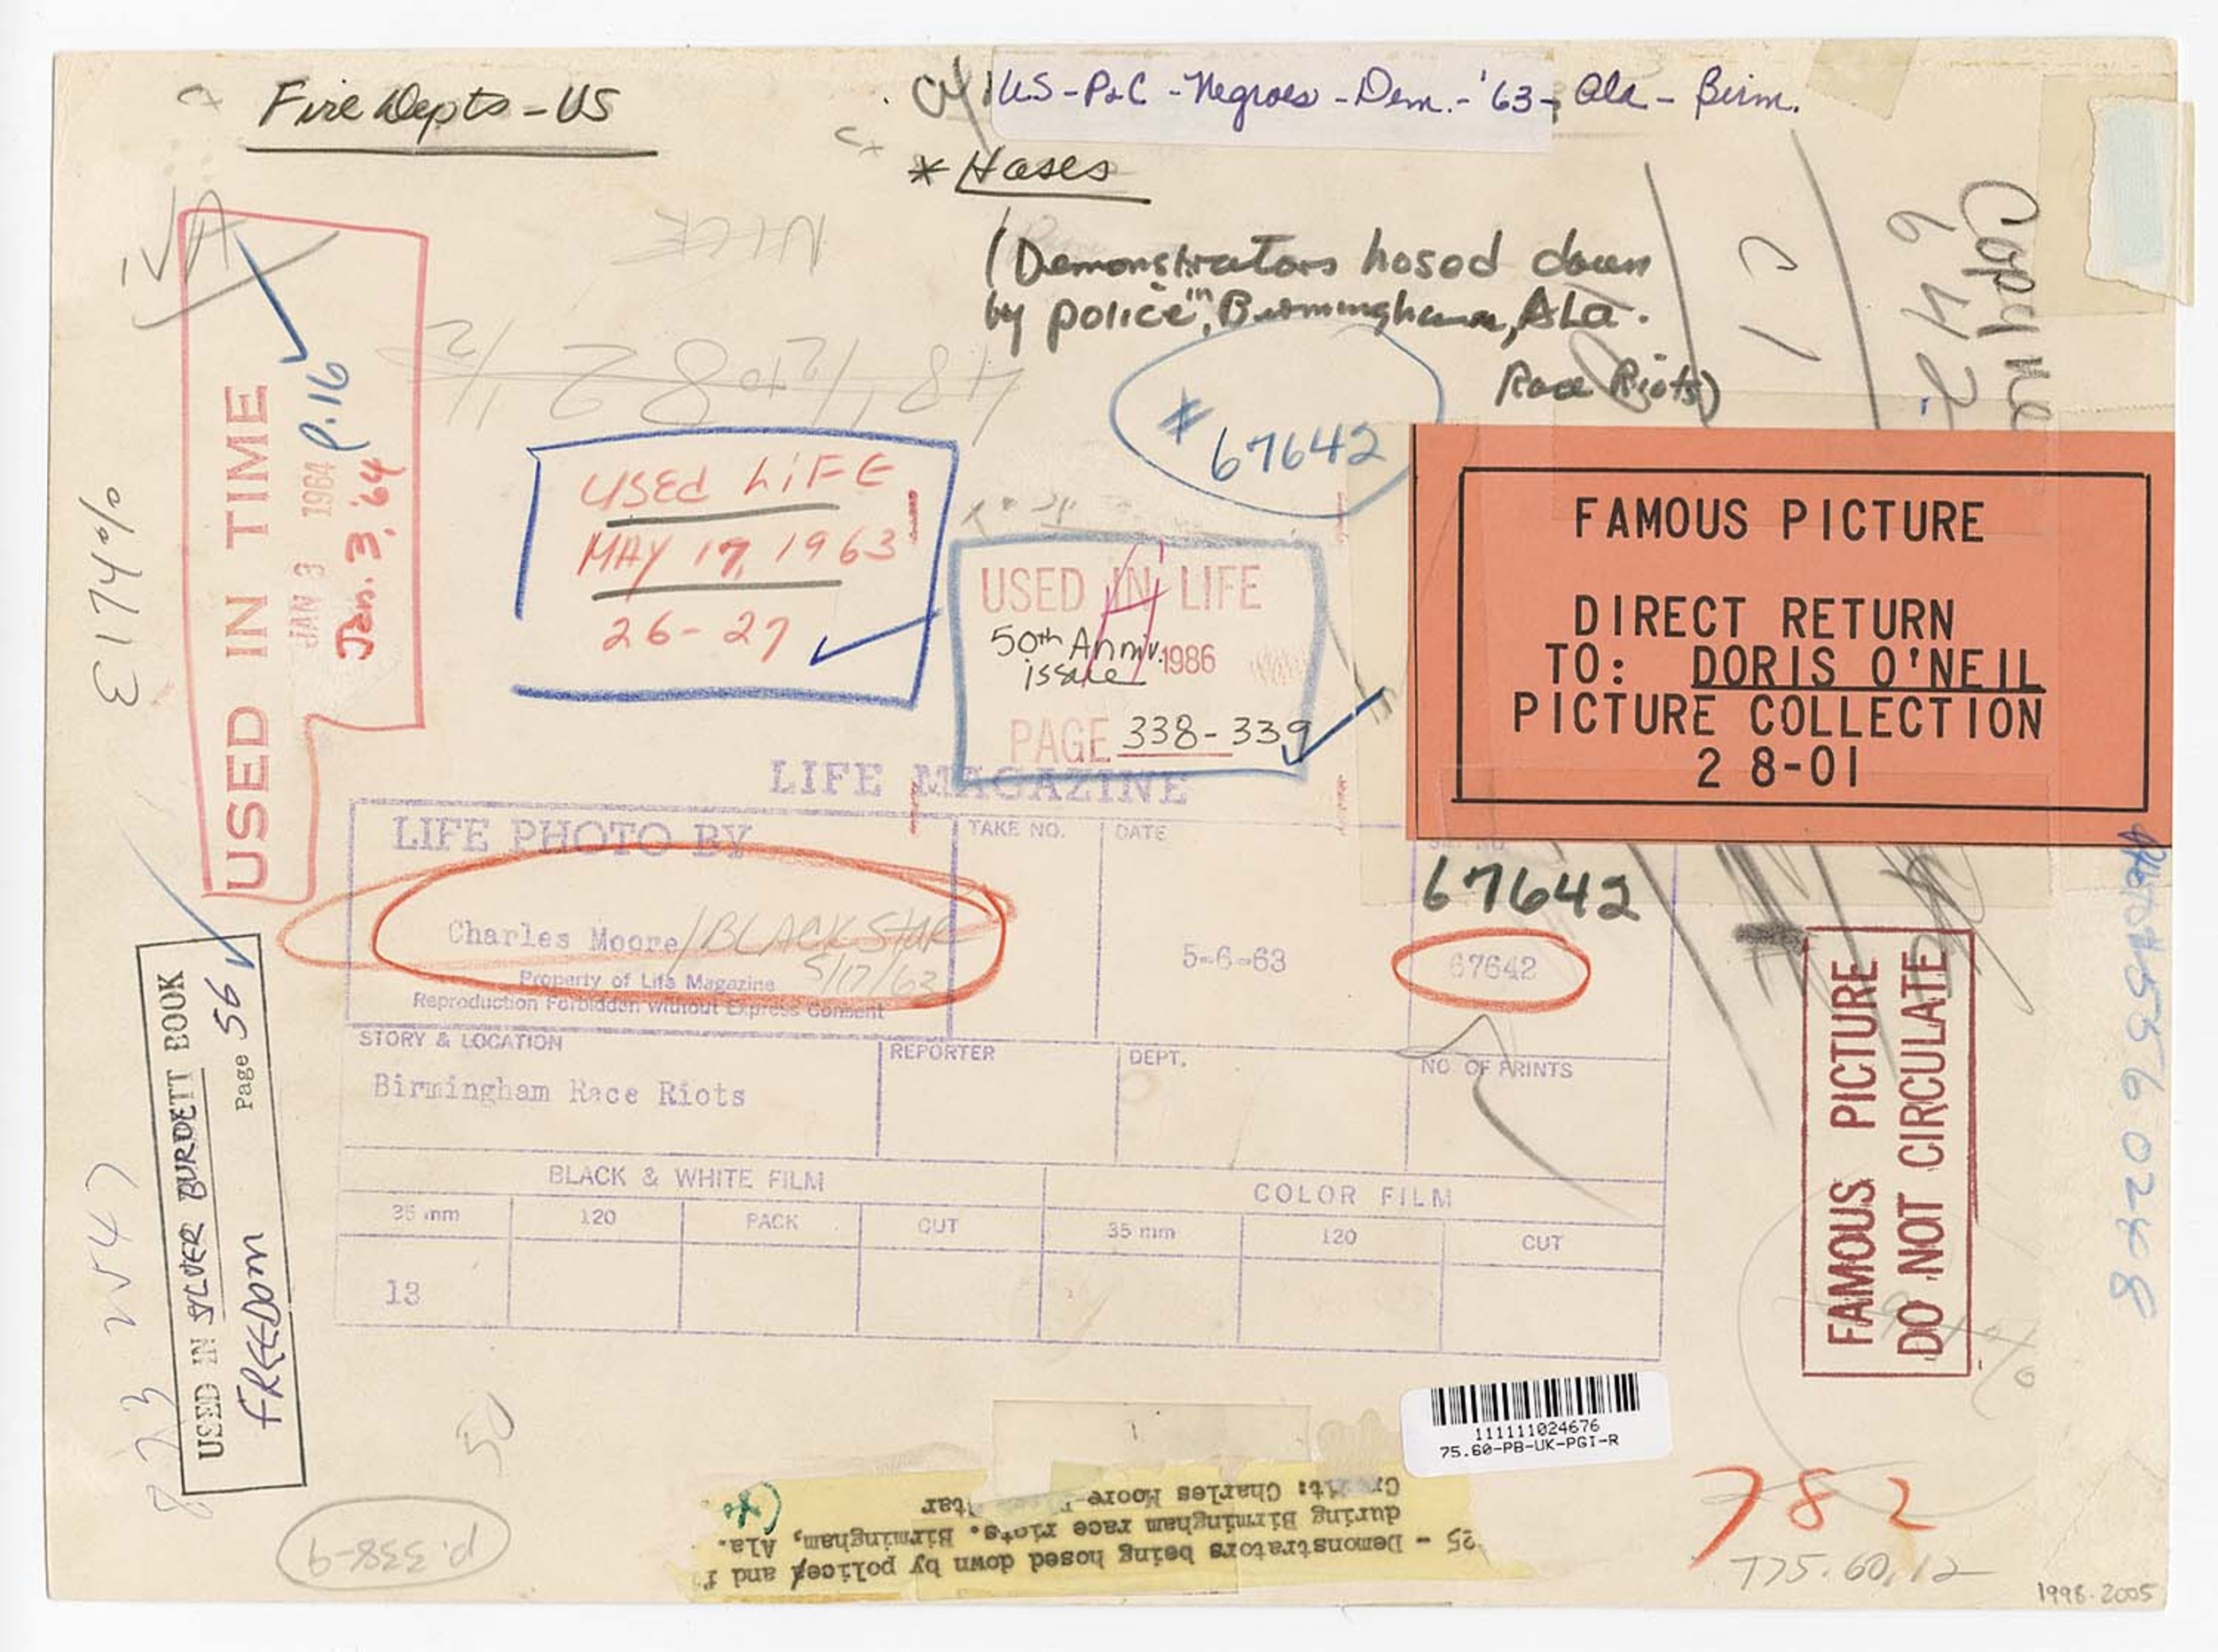 Fire Depts - US
US - P&C - Negroes - Dem. - '63 - Ala - Birm.
* Hoses
(Demonstrators hosed down
by police in Birmingham, Ala.
Race Riots)
Copy Neg
642
C1
NICE
48 1/2 to 82 1/2
# 67642
USED IN TIME
JAN 3 1964
Jan. 3, '64
p. 16
E 174%
USED LIFE
MAY 17, 1963
26-27
USED IN LIFE
50th Anniv.
issue
1986
PAGE 338-339
FAMOUS PICTURE
DIRECT RETURN
TO: DORIS O'NEIL
PICTURE COLLECTION
28-01
LIFE MAGAZINE
LIFE PHOTO BY
Charles Moore/BLACK STAR
5/17/63
Property of Life Magazine
Reproduction Forbidden without Express Consent
TAKE NO.
DATE
5-6-63
67642
67642
STORY & LOCATION
Birmingham Race Riots
REPORTER
DEPT.
NO. OF PRINTS
BLACK & WHITE FILM
COLOR FILM
35 mm
120
PACK
CUT
35 mm
120
CUT
13
USED IN SILVER BURDETT BOOK
FREEDOM Page 56
FAMOUS PICTURE
DO NOT CIRCULATE
50
p. 338-9
111111024676
75.60-PB-UK-PGI-R
25 - Demonstrators being hosed down by police and f
during Birmingham race riots. Birmingham, Ala.
Credit: Charles Moore-
782
T75.60.12
1998-2005